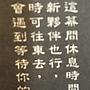 這幕間休息時
新夥伴也行，
時可往東去，
會遇到等待你的